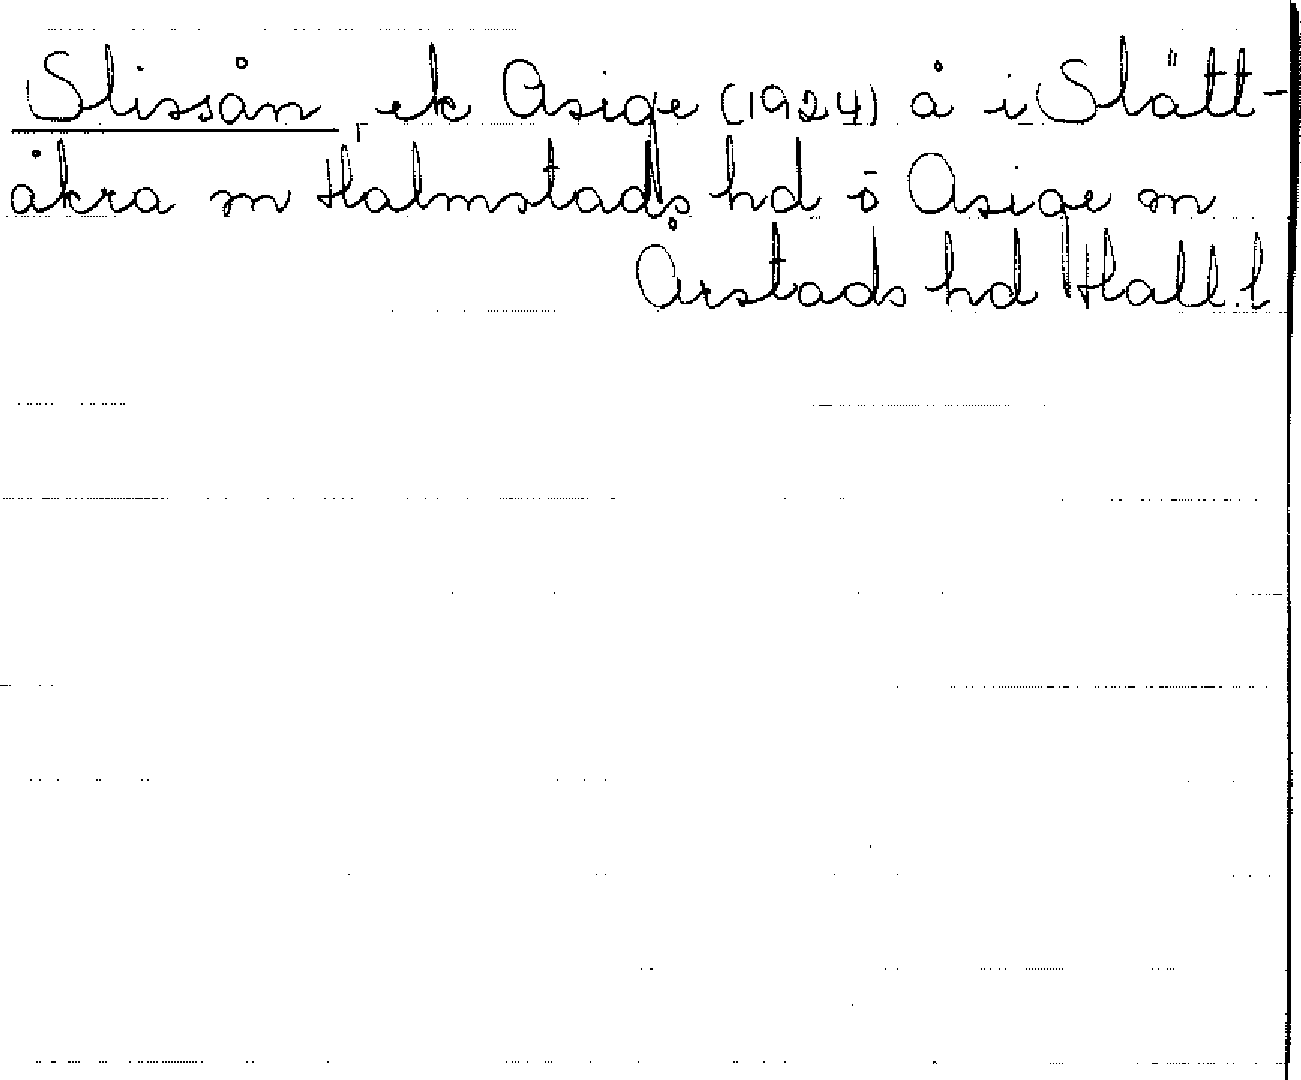 Slissån, ek Asige (1924) å i Slätt-
åkra sn Halmstads hd o Asige sn
Årstads hd Hall. l